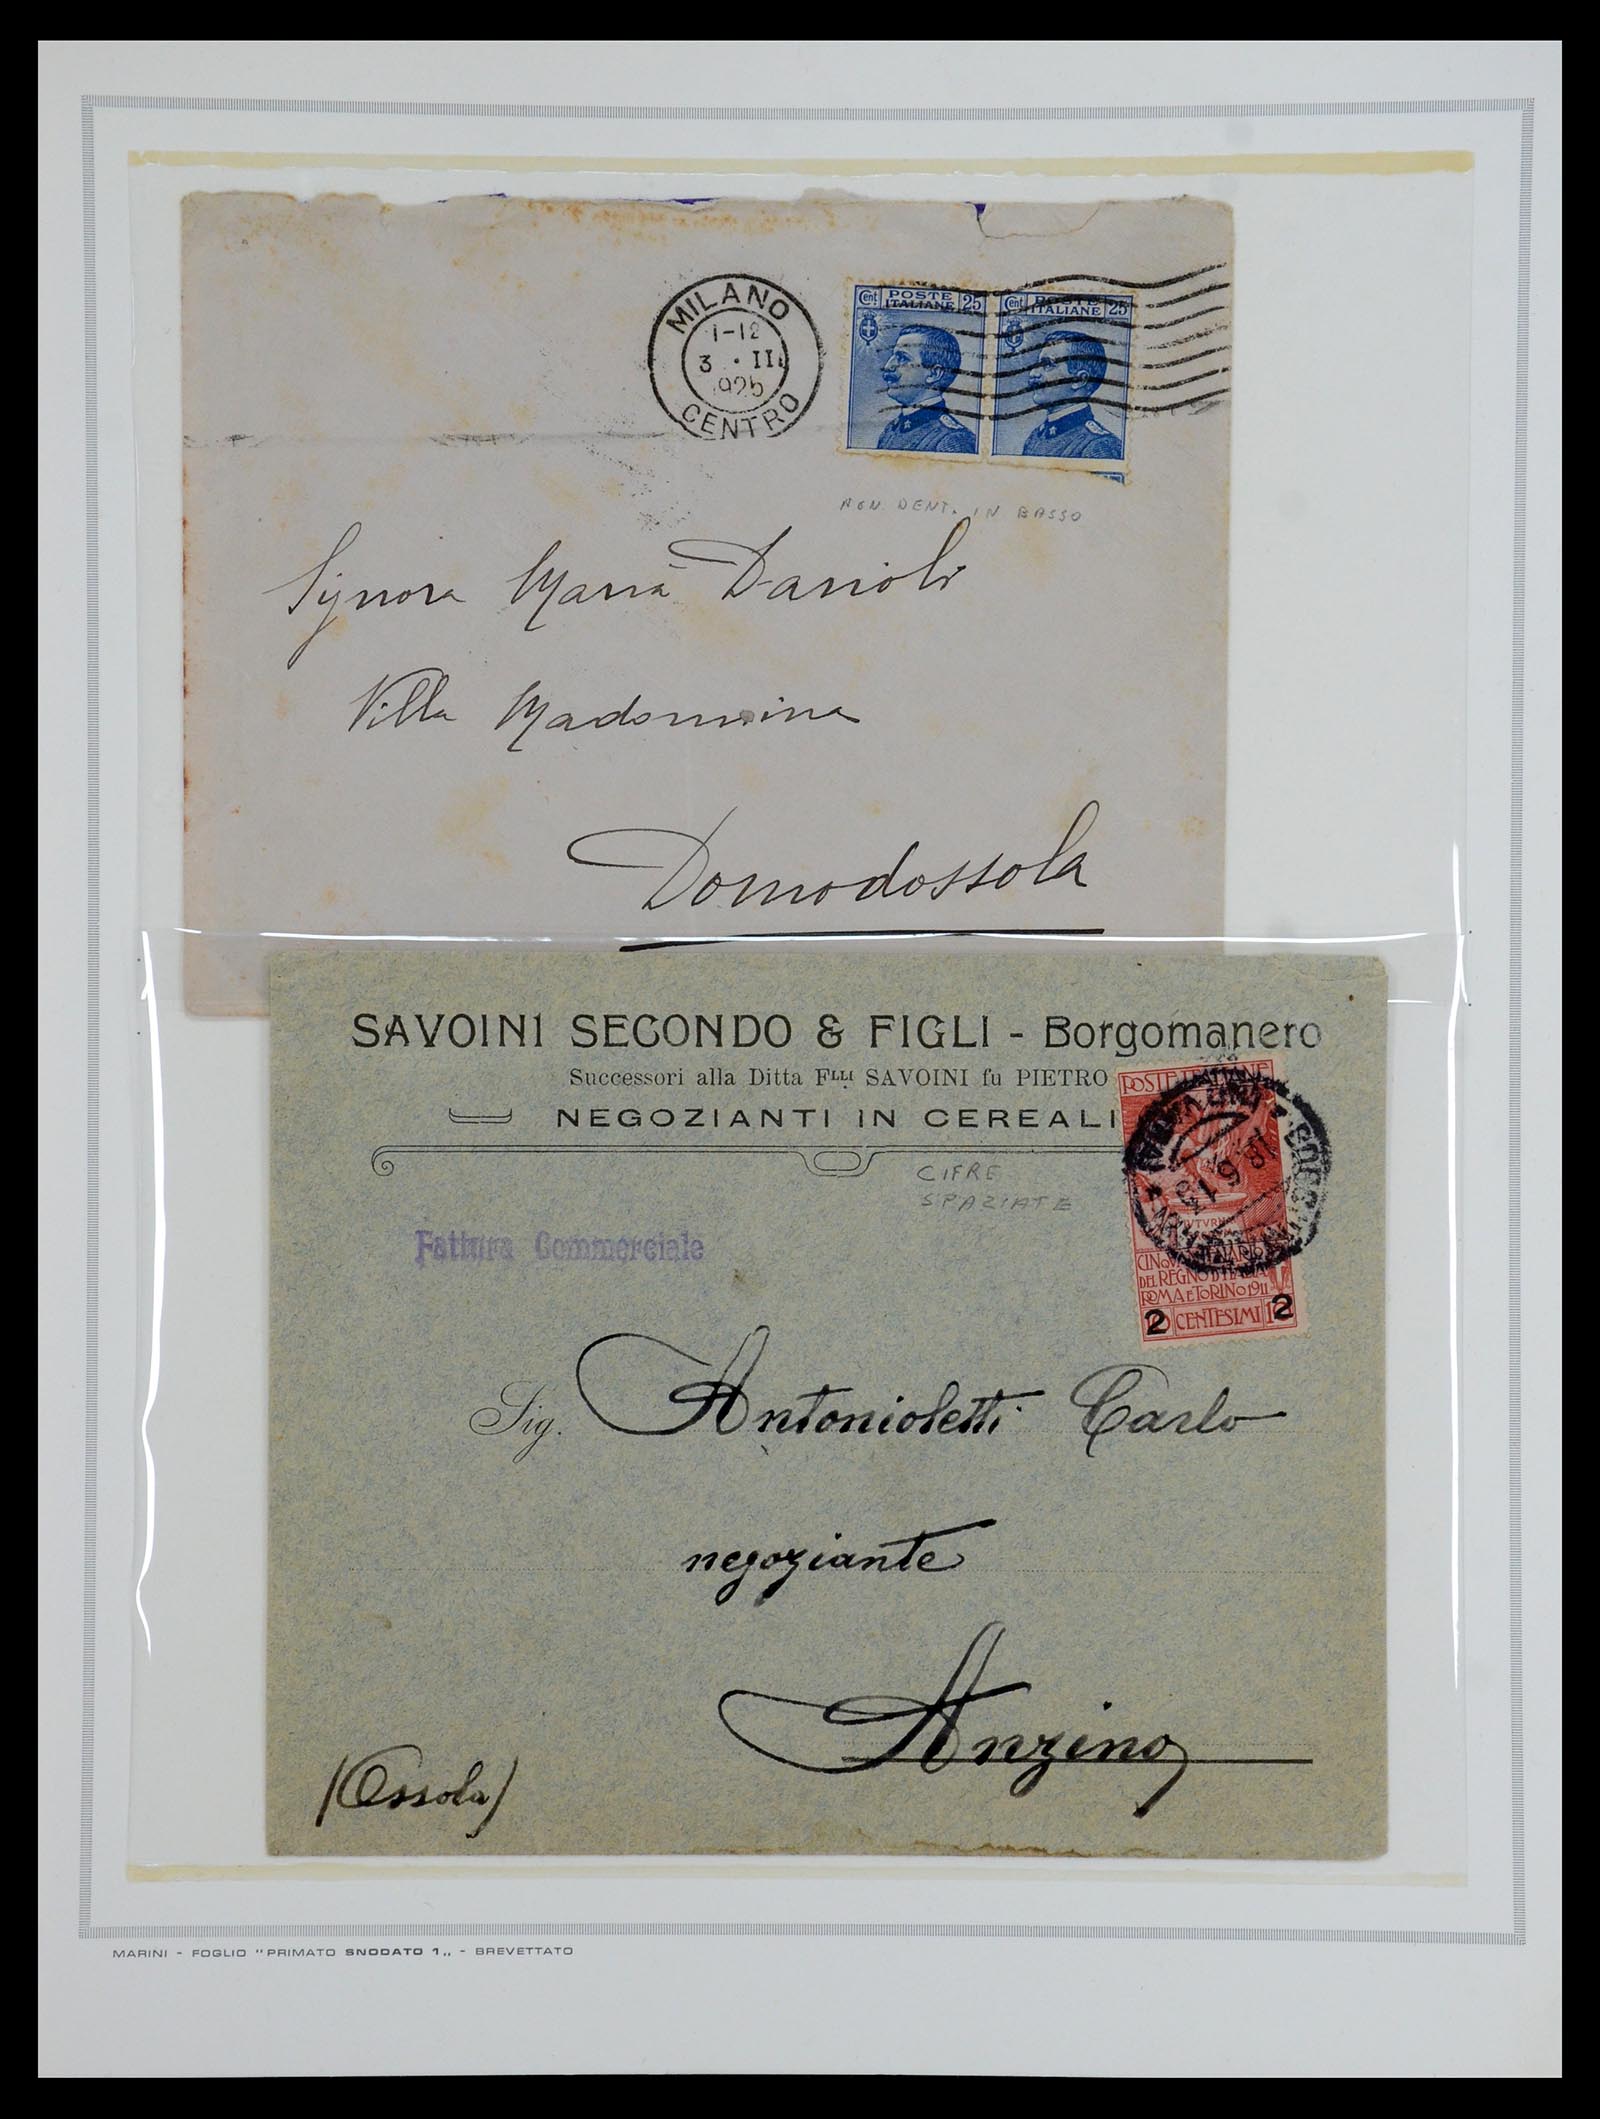 MILANO
1-12
3 · II
1925
CENTRO
Cent. POSTE ITALIANE 25
Cent. POSTE ITALIANE 25
NON DENT. IN BASSO
Signora Maria Darioli
Villa Madonnina
Domodossola
SAVOINI SECONDO & FIGLI - Borgomanero
Successori alla Ditta Flli SAVOINI fu PIETRO
NEGOZIANTI IN CEREALI
CIFRE
SPAZIATE
Fattura Commerciale
POSTE ITALIANE
18 6 13
CINQVANTENARIO
DEL REGNO D'ITALIA
ROMA E TORINO 1911
2 CENTESIMI 2
Sig. Antonioletti Carlo
negoziante
Anzino
(Ossola)
MARINI - FOGLIO "PRIMATO SNODATO 1„ - BREVETTATO